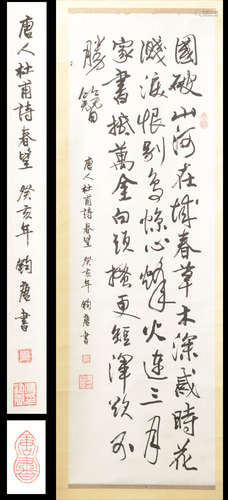 國破山河在城春草木深感時花
濺淚恨別鳥驚心烽火連三月
家書抵萬金白頭搔更短渾欲不
勝簪
唐人杜甫詩春望 癸亥年 鈞 書
唐人杜甫詩春望 癸亥年 鈞 書